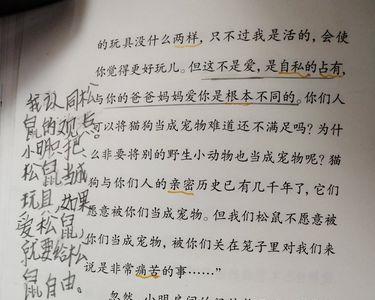 的玩具没什么两样，只不过我是活的，会使
你觉得更好玩儿。但这不是爱，是自私的占有，
与你的爸爸妈妈爱你是根本不同的。你们人
可以将猫狗当成宠物难道还不满足吗？为什
么非要将别的野生小动物也当成宠呢？猫
狗与你们人的亲密历史已有几千年了，它们
愿意被你们当成宠物。但我们松鼠不愿意被
你们当成宠物，被你们关在笼子里对我们来
说是非常痛苦的事……”
忽然，小明房间的
我认同松
鼠的观点。
小明只把
松鼠当成
玩具，如果
爱松鼠，
就要给松
鼠自由。